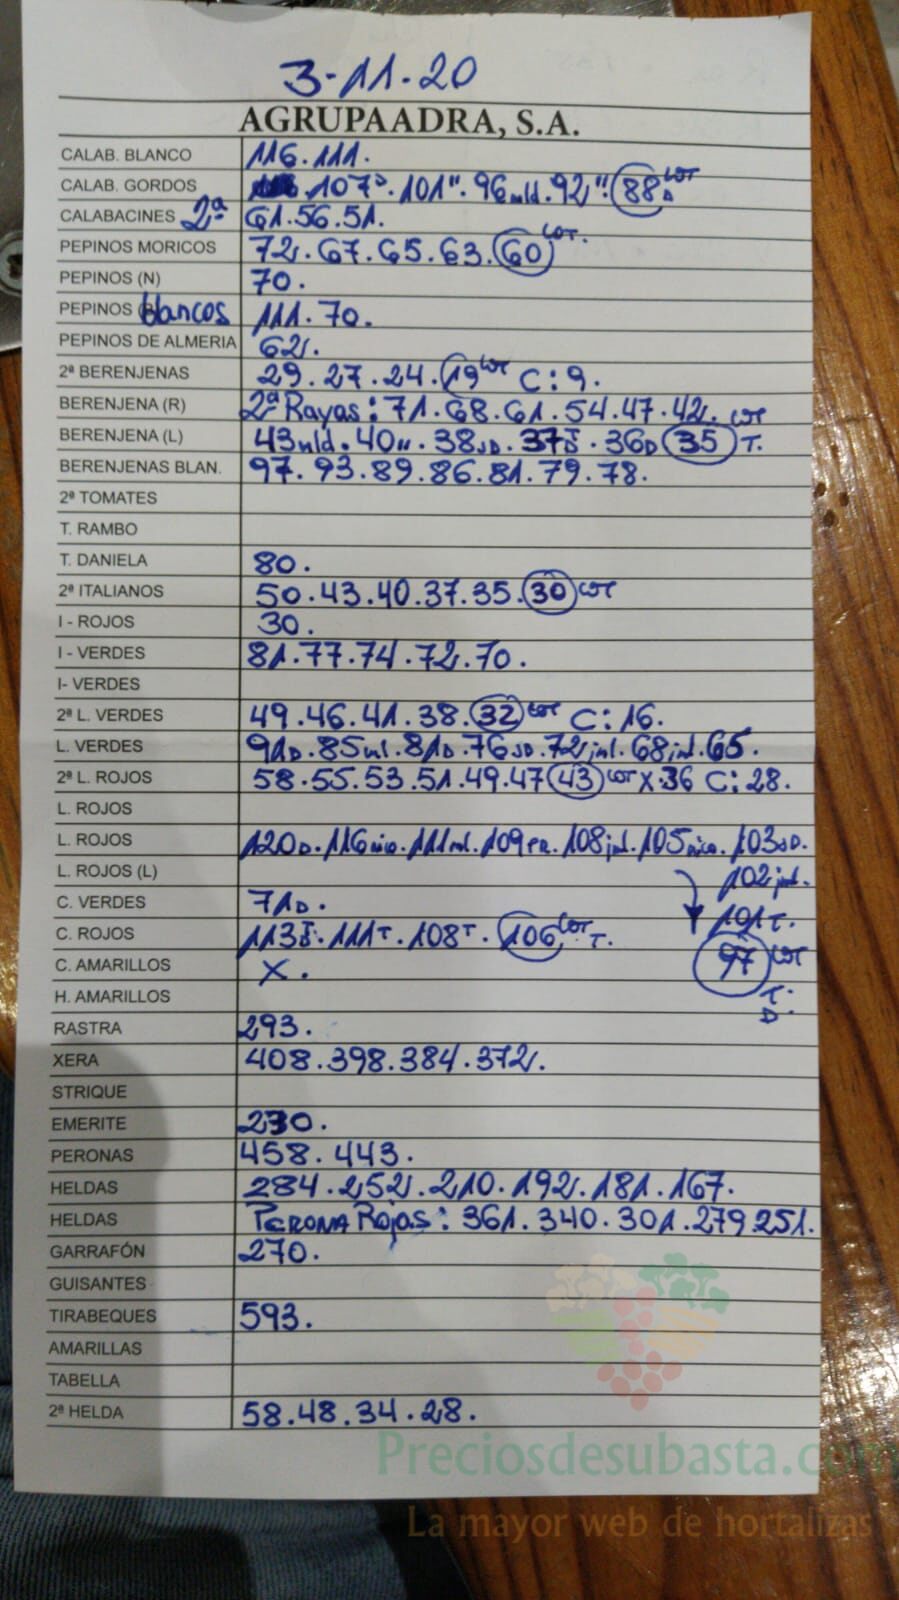 3-11-20
AGRUPAADRA, S.A.
CALAB. BLANCO 116.111.
CALAB. GORDOS 107D.101".96mld.92".88 COT D
CALABACINES 2ª 61.56.51.
PEPINOS MORICOS 72.67.65.63.60 COT.
PEPINOS (N) 70.
PEPINOS blancos 111.70.
PEPINOS DE ALMERIA 62.
2ª BERENJENAS 29.27.24.19 COT C:9.
BERENJENA (R) 2ª Rayas: 71.68.61.54.47.42.
BERENJENA (L) 43mld.40".38JD.37J.36D 35 COT T.
BERENJENAS BLAN. 97.93.89.86.81.79.78.
2ª TOMATES
T. RAMBO
T. DANIELA 80.
2ª ITALIANOS 50.43.40.37.35.30 COT
I - ROJOS 30.
I - VERDES 81.77.74.72.70.
I- VERDES
2ª L. VERDES 49.46.41.38.32 COT C:16.
L. VERDES 91D.85ml.81D.76JD.72jml.68jml.65.
2ª L. ROJOS 58.55.53.51.49.47 43 COT X.36 C:28.
L. ROJOS
L. ROJOS 120D.116mica.111ml.109PR.108jml.105mica.103JD.
L. ROJOS (L) 102jml.
C. VERDES 71D. 101T.
C. ROJOS 113J.111T.108T.106 COT T.
C. AMARILLOS X. 97 COT
H. AMARILLOS T. D
RASTRA 293.
XERA 408.398.384.372.
STRIQUE
EMERITE 230.
PERONAS 458.443.
HELDAS 284.252.210.192.181.167.
HELDAS PERONA Rojas: 361.340.301.279.251.
GARRAFÓN 270.
GUISANTES
TIRABEQUES 593.
AMARILLAS
TABELLA
2ª HELDA 58.48.34.28.
Preciosdesubasta.com
La mayor web de hortalizas